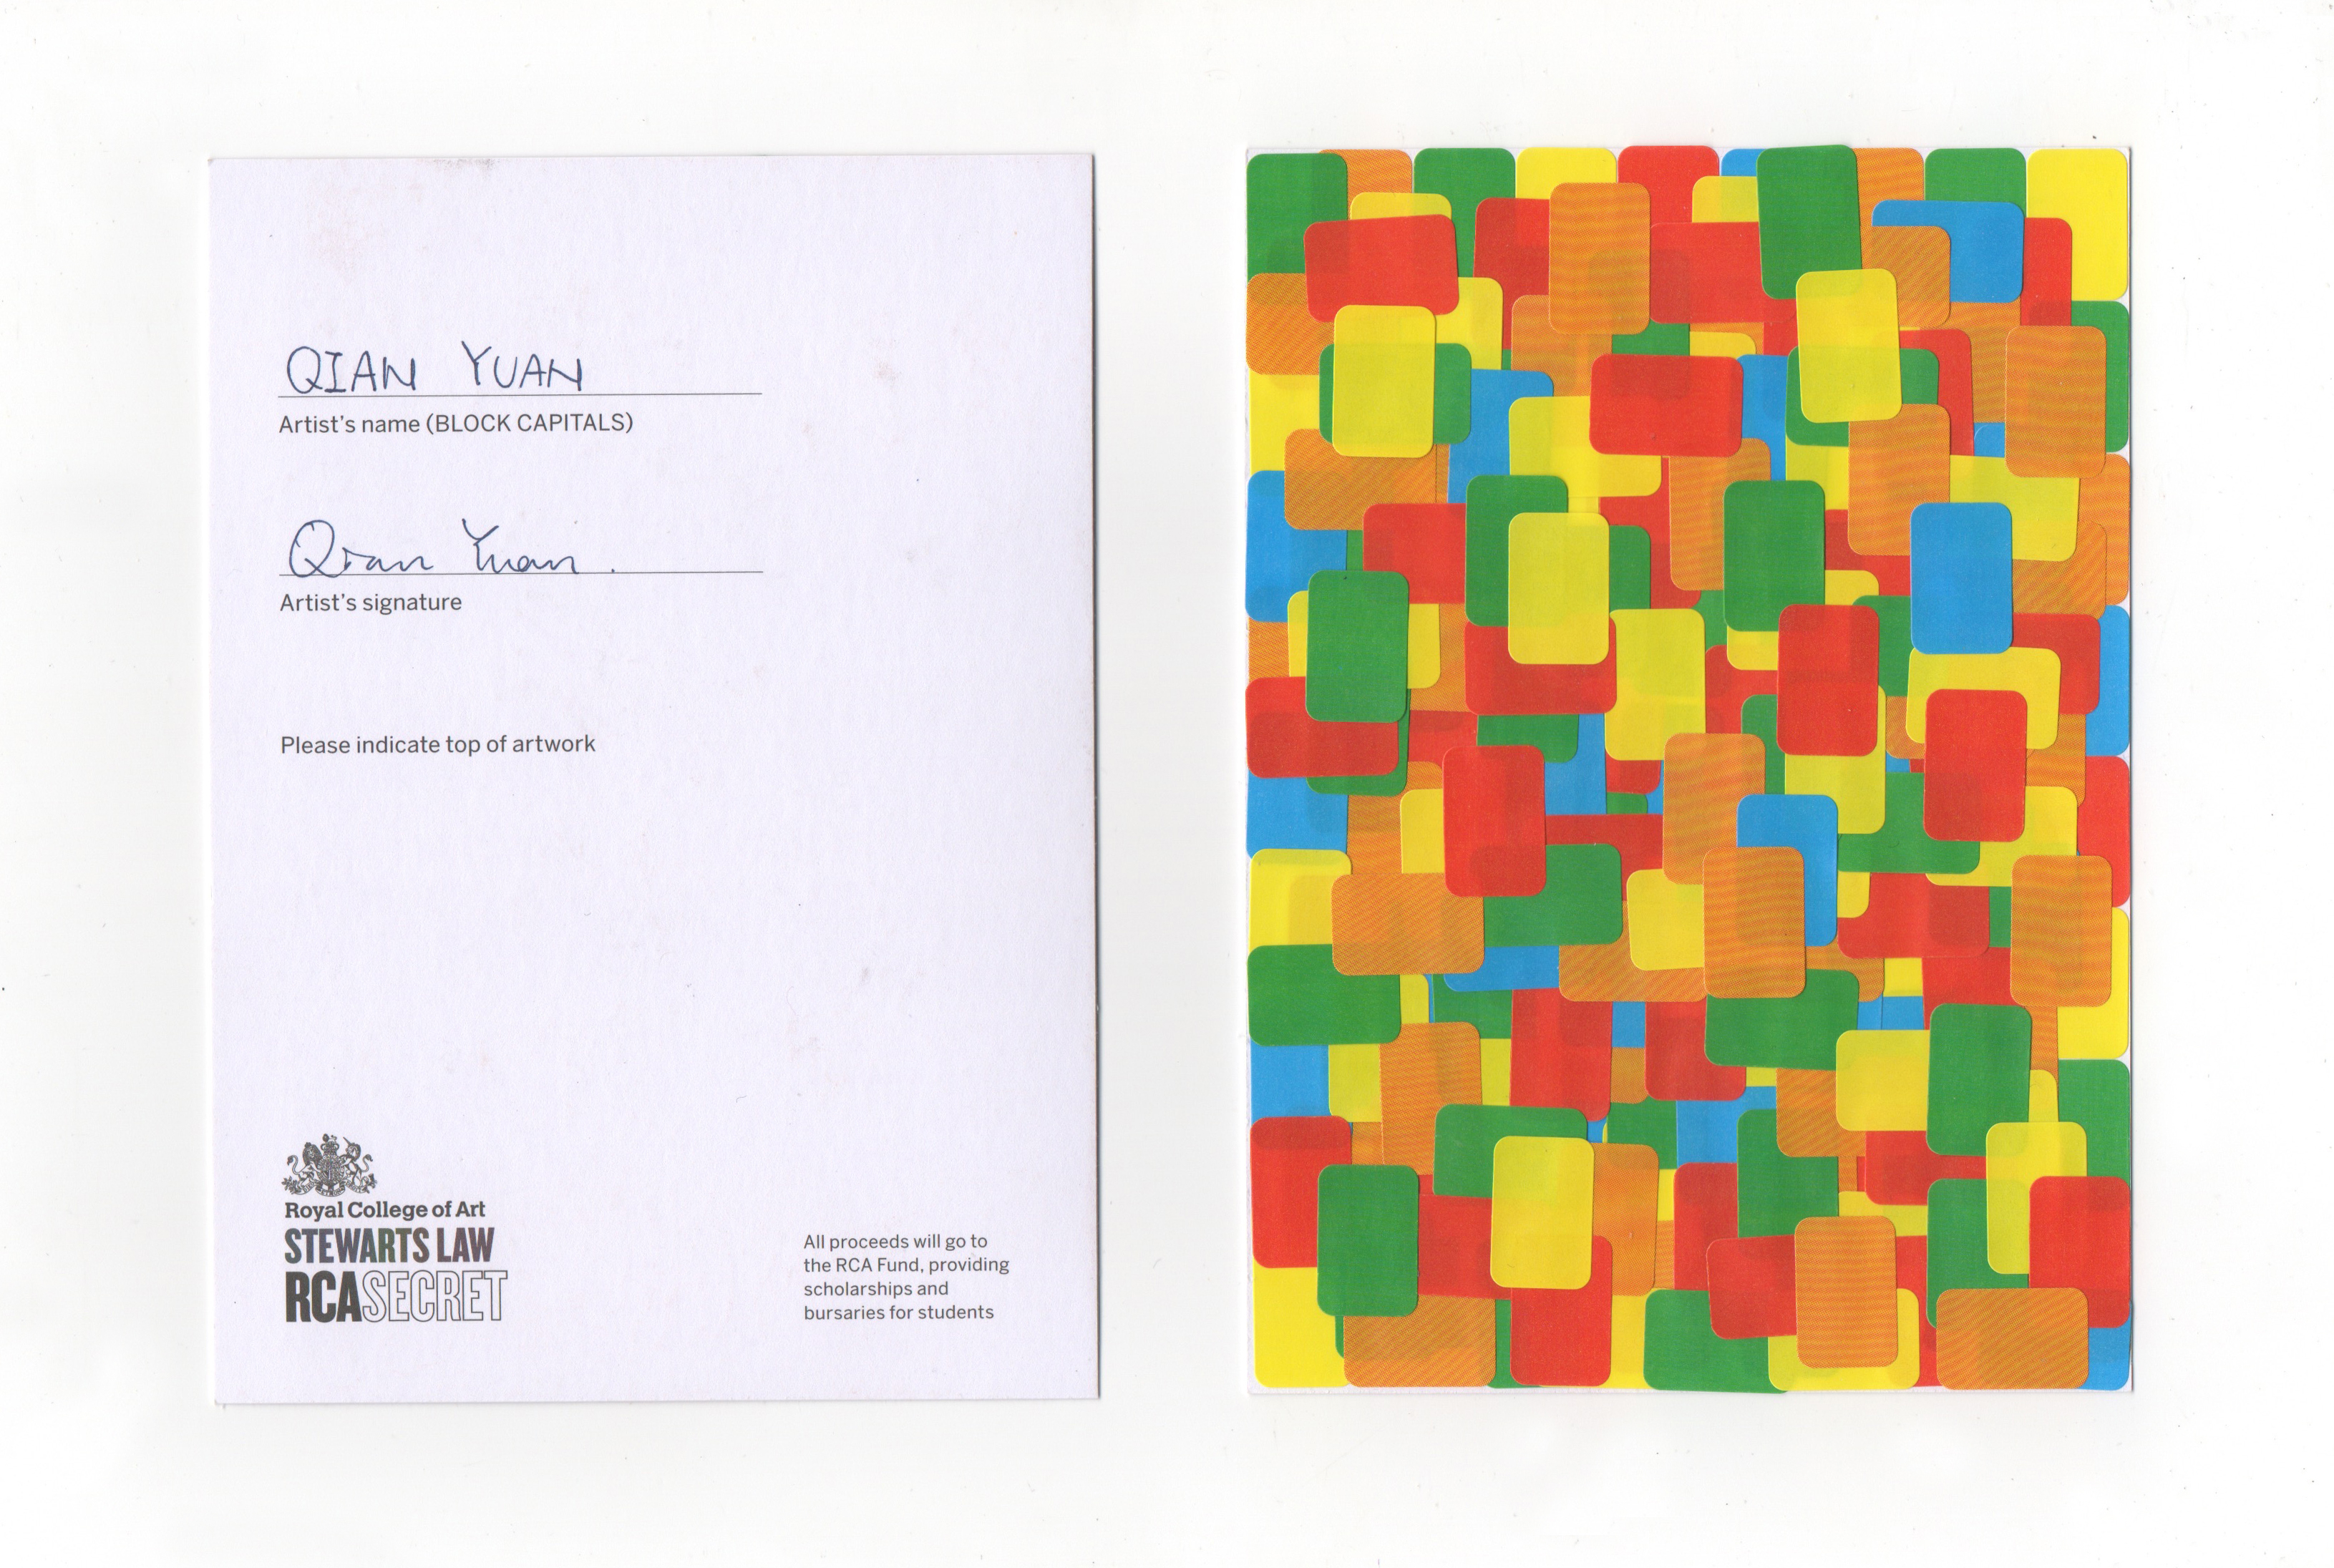 QIAN YUAN
Artist's name (BLOCK CAPITALS)
Qian Yuan.
Artist's signature
Please indicate top of artwork
Royal College of Art
STEWARTS LAW
RCASECRET
All proceeds will go to
the RCA Fund, providing
scholarships and
bursaries for students